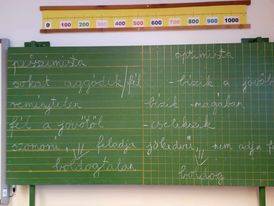 0 100 200 300 400 500 600 700 800 900 1000
pesszimista
optimista
sokat aggódik/fél
-bízik a jövőb
reménytelen
-bízik magában
fél a jövőtől
-cselekszik
szomorú, feladja
jókedvű, nem adja f
boldogtalan
boldog